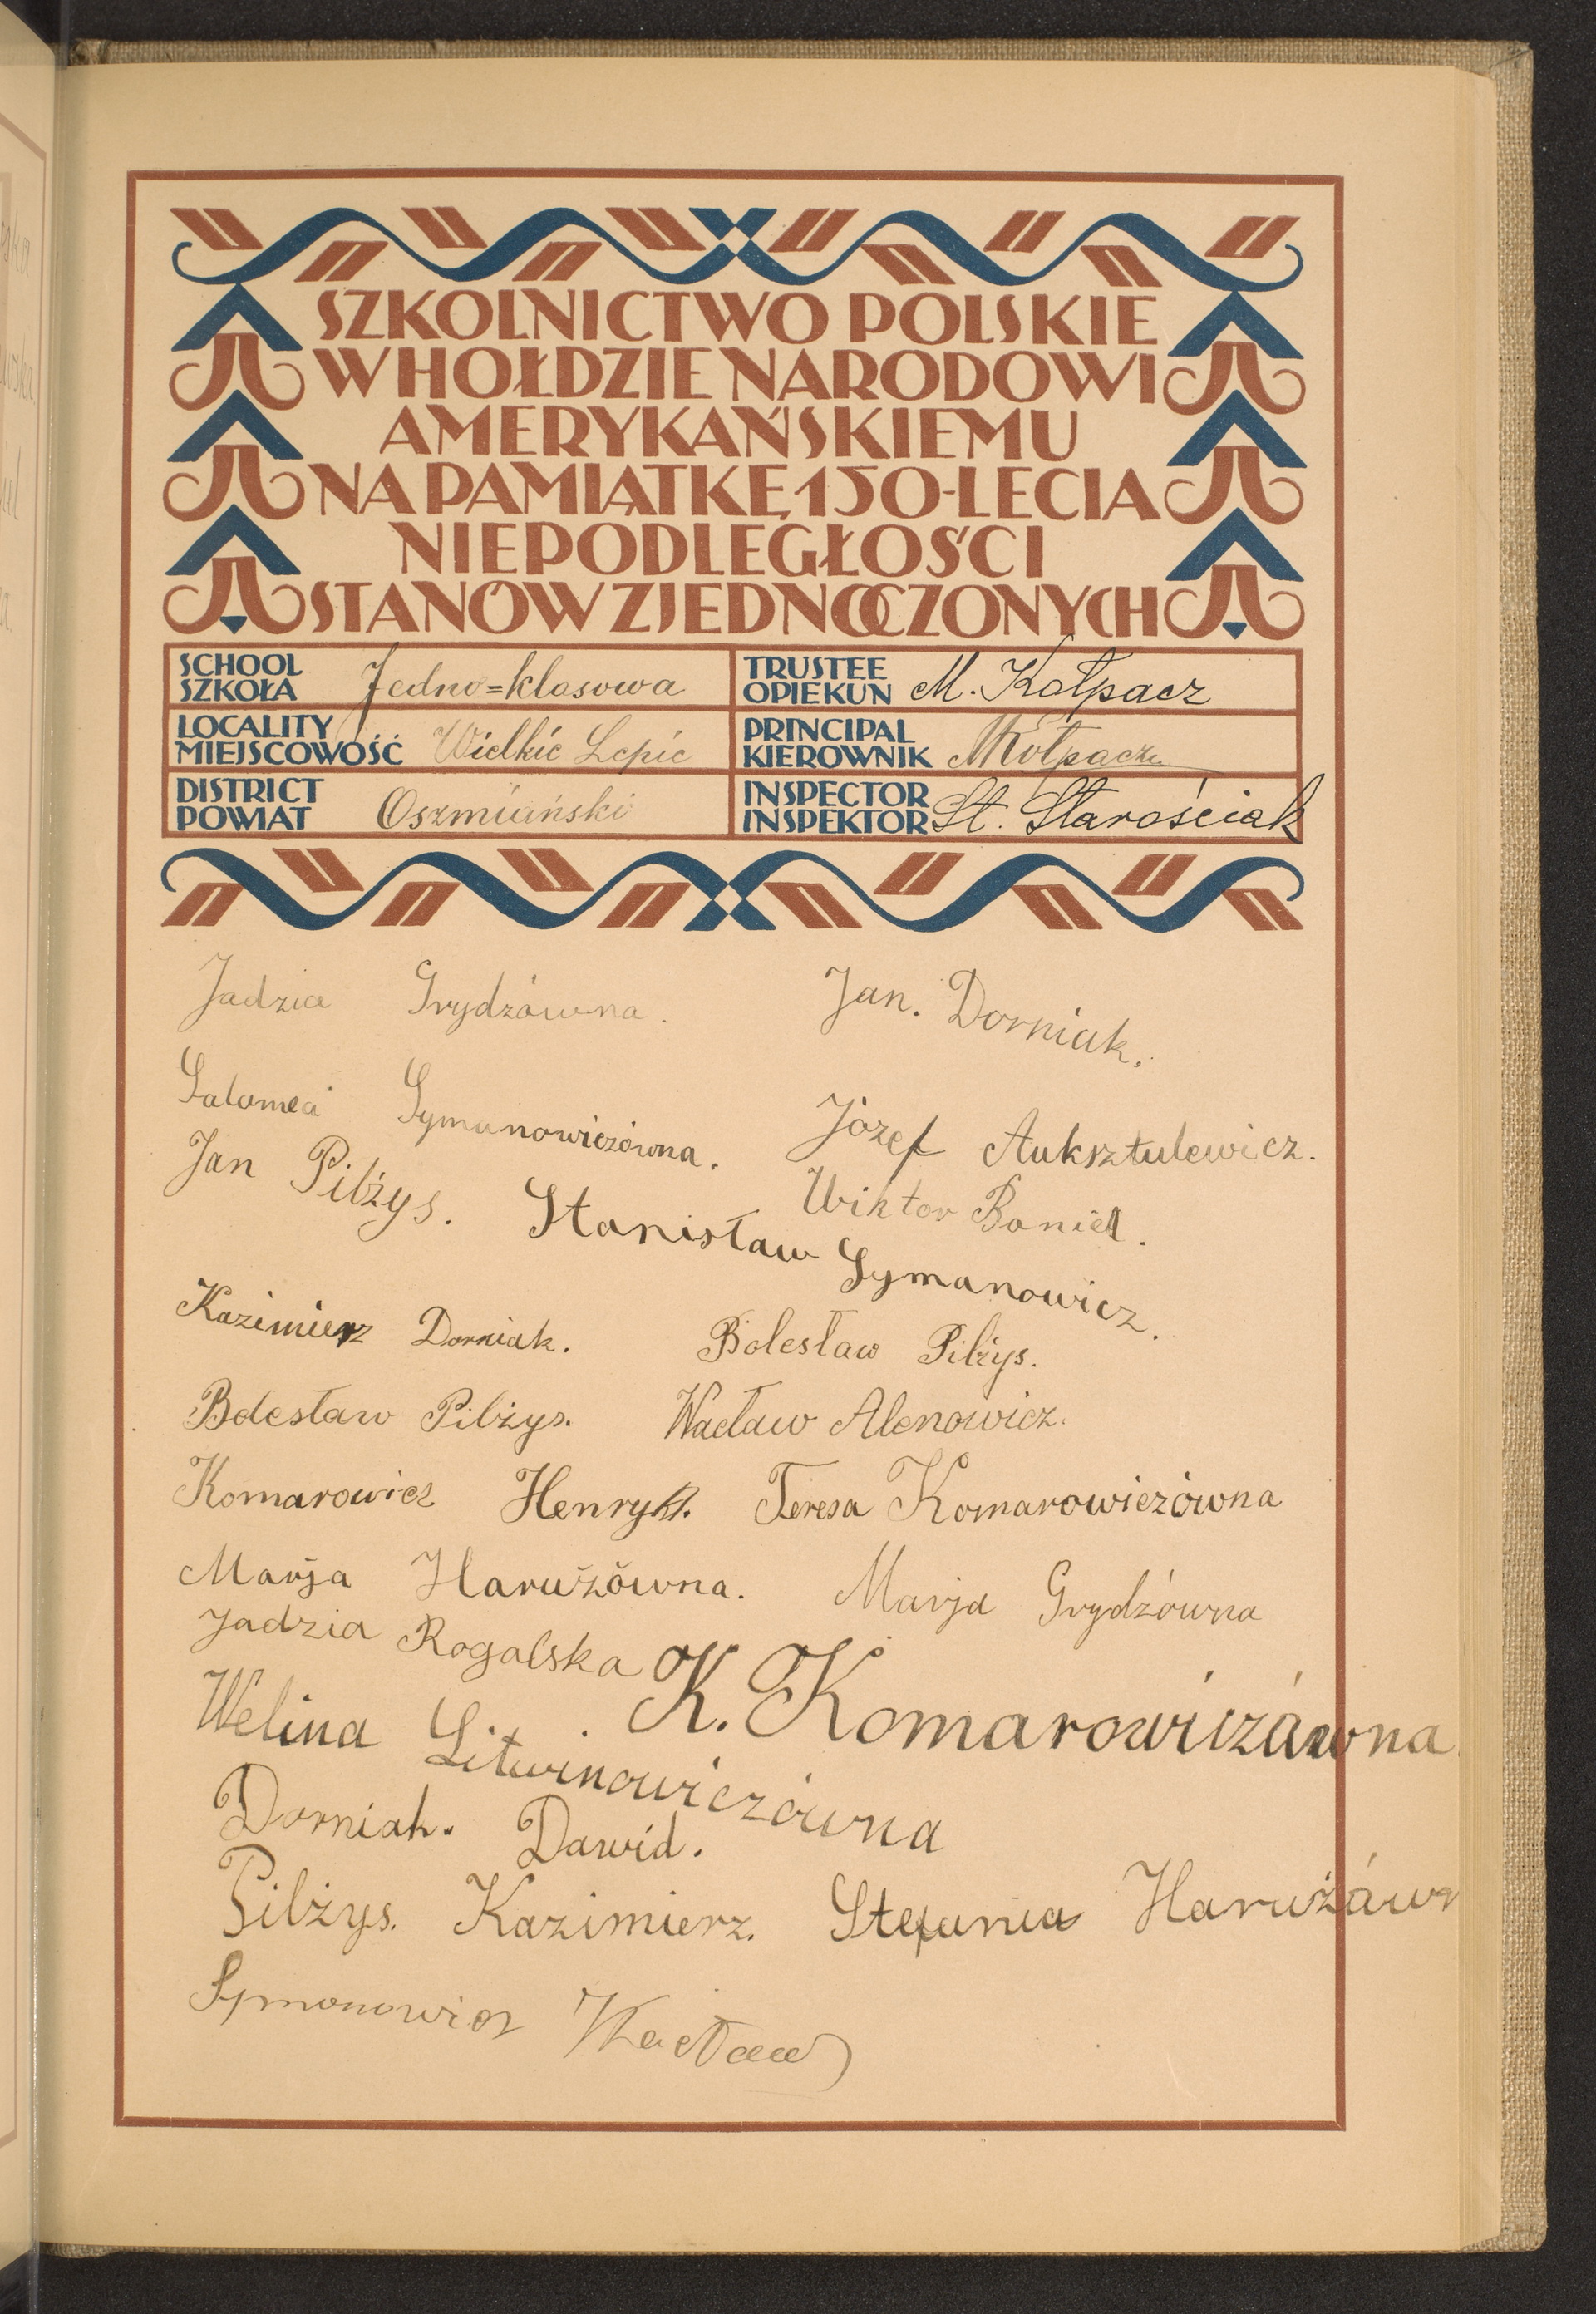 SZKOLNICTWO POLSKIE
W HOŁDZIE NARODOWI
AMERYKAŃSKIEMU
NA PAMIĄTKĘ 150-LECIA
NIEPODLEGŁOŚCI
STANÓW ZJEDNOCZONYCH
SCHOOL
SZKOŁA Jedno=klasowa
TRUSTEE
OPIEKUN M. Kołpacz
LOCALITY
MIEJSCOWOŚĆ Wielkie Lepie
PRINCIPAL
KIEROWNIK MKołpacz
DISTRICT
POWIAT Oszmiański
INSPECTOR
INSPEKTOR St. Starościak
Jadzia Grydzówna.
Jan. Dorniak.
Salomea Symunowiczówna.
Józef Auksztulewicz.
Jan Pilżys.
Wiktor Boniel.
Stanisław Symanowicz.
Kazimierz Dorniak.
Bolesław Pilżys.
Bolesław Pilżys.
Wacław Alenowicz.
Komarowicz Henryk.
Teresa Komarowiczówna
Marja Harużówna.
Marja Grydzówna
Jadzia Rogalska
K. Komarowiczówna
Welina Litwinowiczówna
Dorniak. Dawid.
Pilżys. Kazimierz.
Stefania Harużówn
Symonowicz Wacław